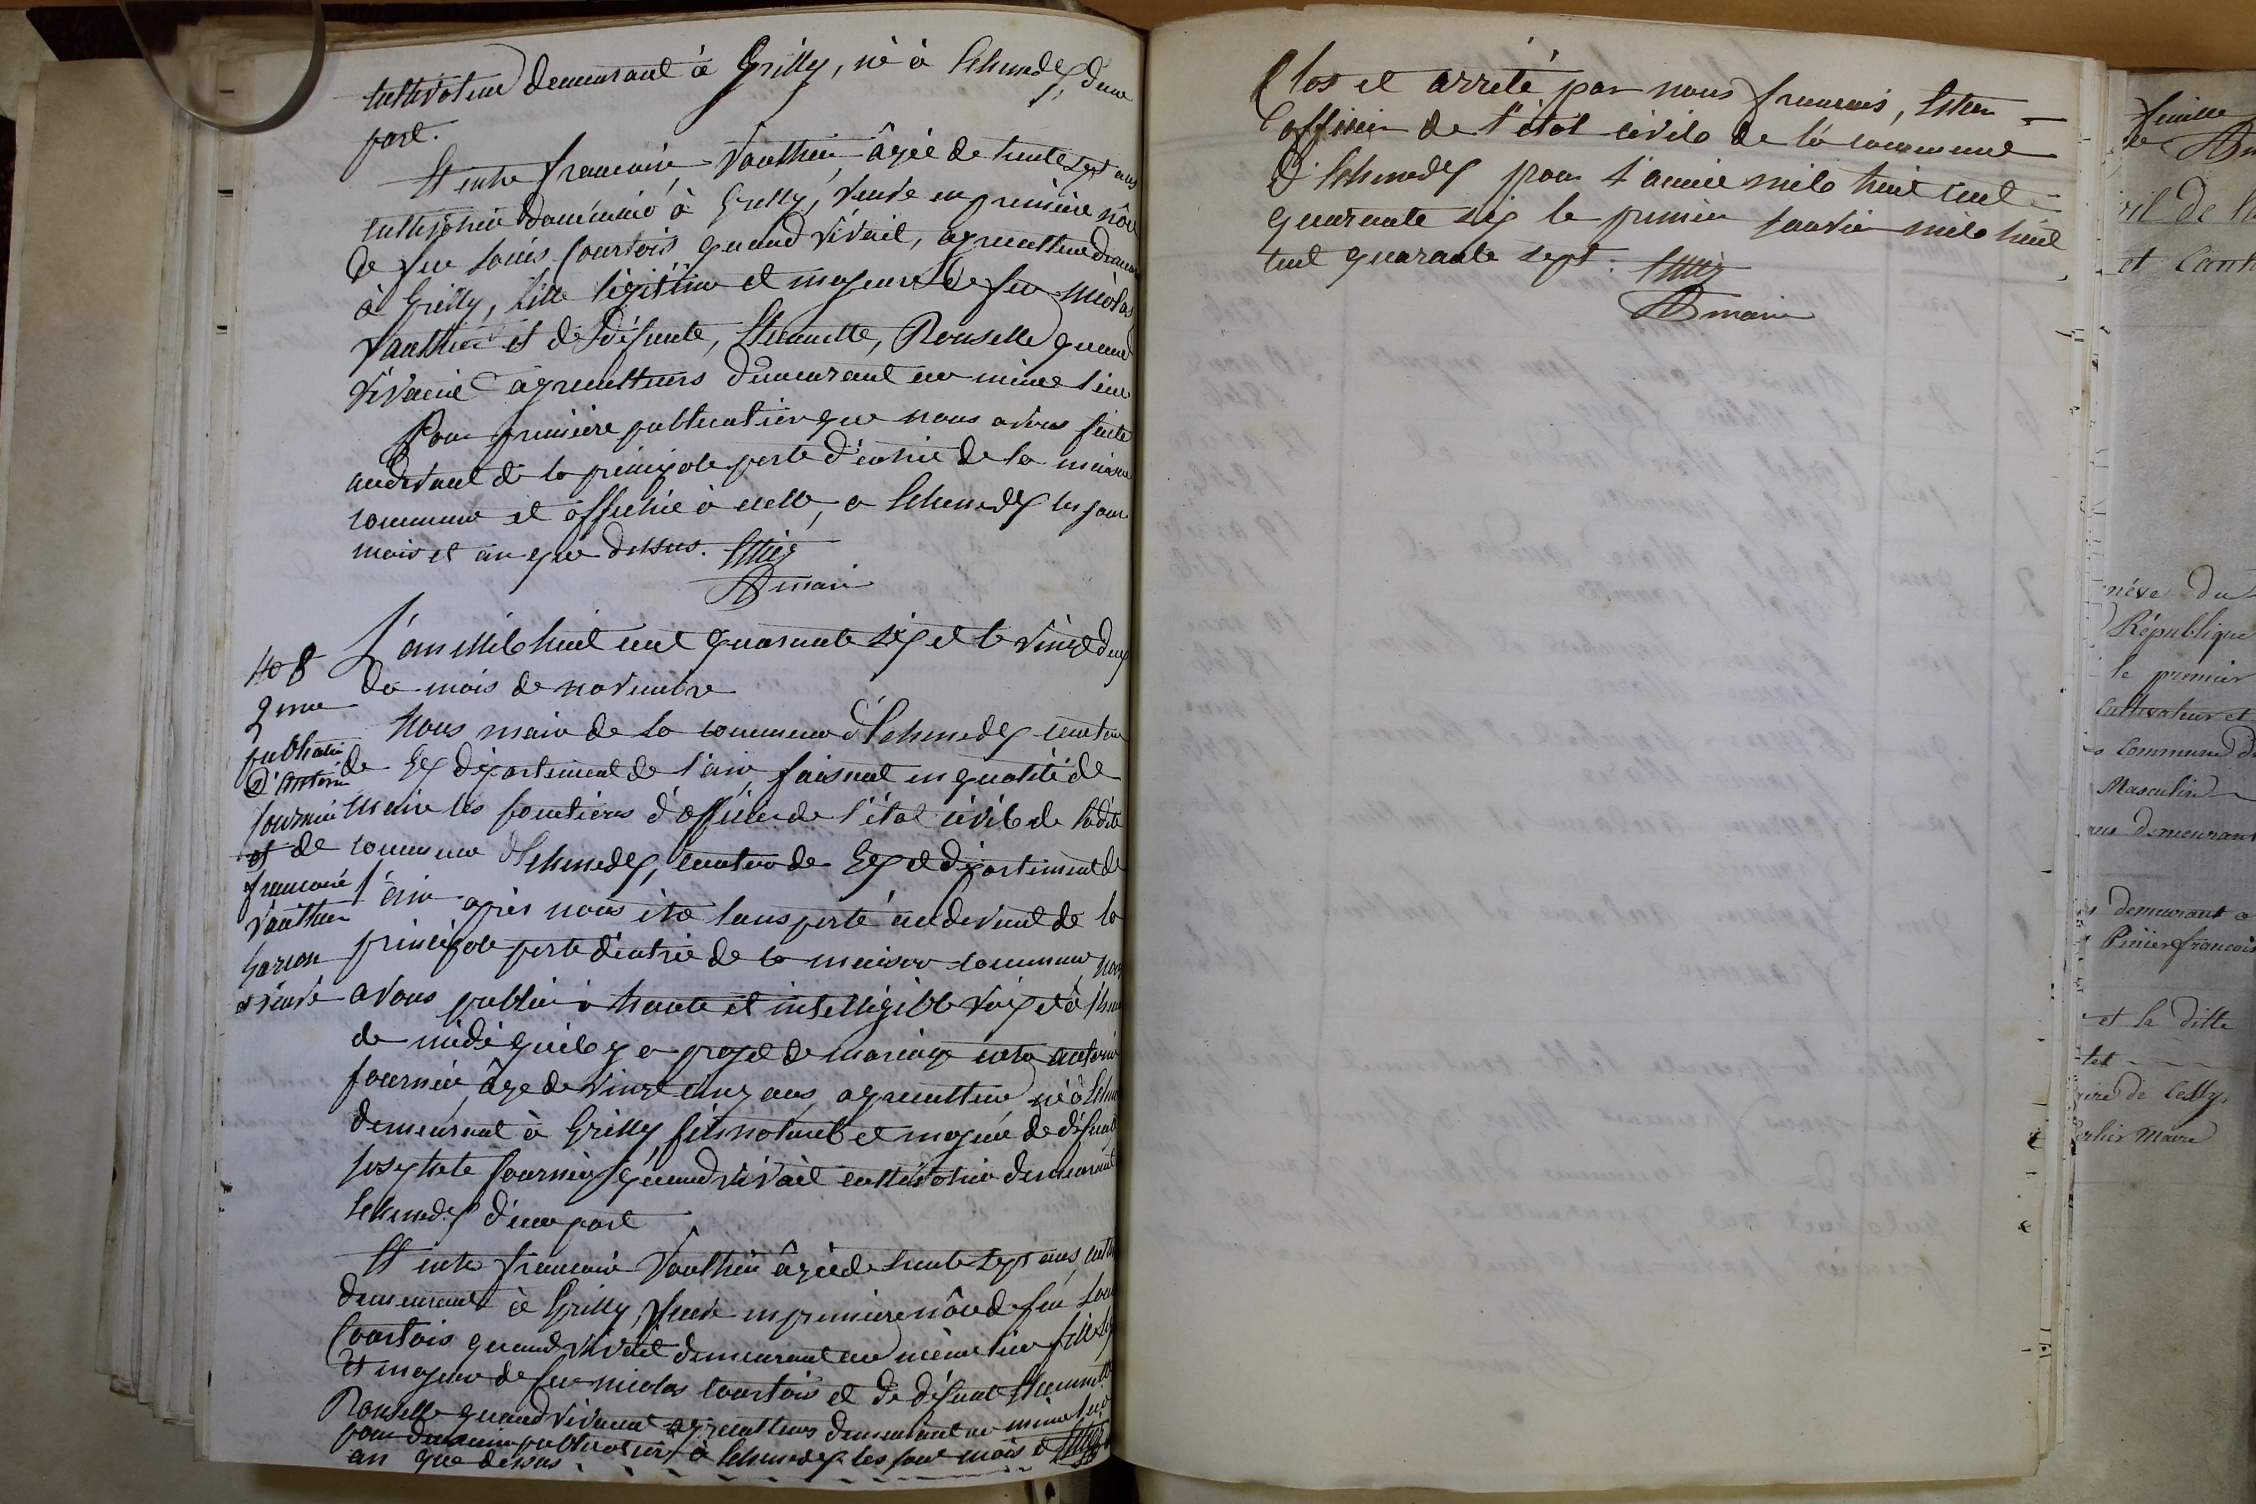 Cultivateur demeurant à Grilly, né à Echenedex, d'une
part.
Et entre françoise Vauthier, âgée de trente sept ans
cultivatrice domiciliée à Grilly, veuve en première nôce
de feu Louis Courtois quand vivait, agriculteur demeurant
à Grilly, fille légitime et majeure de feu nicolas
Vauthier et de défunte, Etiennette, Rouselle quand
vivaient agriculteurs demeurant au même lieu
Pour première publication que nous avons faite
audevant de la principale porte d'entrée de la maison
commune et affichée à icelle, a Echenedex les jour
mois et an que dessus. Ettier
maire
L'an mil huit cent quarante six et le vingt deux
du mois de novembre
Nous maire de la commune d'Echenedex canton
de Gex département de l'ain, faisant en qualité de
Maire les fonctions d'officier de l'état civile de ladite
commune d'Echenedex, canton de Gex et département de
l'ain après nous être transporté audevant de la
principale porte d'entrée de la maison commune nous
avons publié à haute et intelligible voix et à l'heure
de midi qu'il y a projet de mariage entre antoine
fournier, âgé de vingt cinq ans, agriculteur né à
demeurant à Grilly, fils naturel et majeur de défunte
josephete fournier quand vivait cultivatrice demeurant
Echenedex d'une part
Et entre françoise Vauthier âgée de trente sept ans,
demeurant à Grilly, veuve en première nôce de feu
Courtois quand vivait demeurant au même lieu fille
et majeure de feu nicolas courtois et de défunte Etiennette
Rouselle quand vivaient agriculteurs demeurant au même lieu
pour deuxième publication à Echenedex les jour mois et
an que dessus. Ettier
N° 8
2me
publication
d'Antoine
fournier
et de
francoise
Vauthier
Garçon
et veuve
Clos et arrêté par nous francois, Ettier
officier de l'état civile de la commune
d'Echenedex pour l'année mile huit cent
quarante six le premier janvier mile huit
cent quarante sept. Ettier
maire
feuille
et Cant
République
le premier
Cultivateur et
Commune de
Masculin
demeurant
demeurant a
françois
et la ditte
de Cessy
Maire